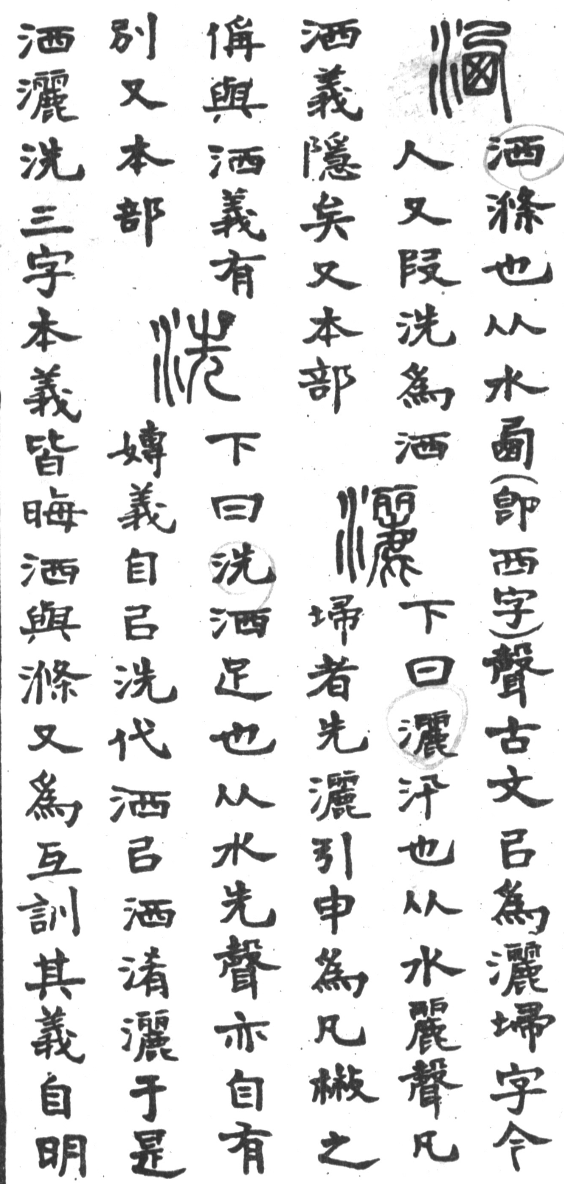 洒
洒滌也从水卥(即西字)聲古文㠯為灑埽字今
人又叚洗為洒
洒義隱矣又本部
灑
下曰灑汛也从水麗聲凡
埽者先灑引申為凡㪔之
偁與洒義有
別又本部
洗
下曰洗洒足也从水先聲亦自有
嫥義自㠯洗代洒㠯洒淆灑于是
洒灑洗三字本義皆晦洒與滌又為互訓其義自明